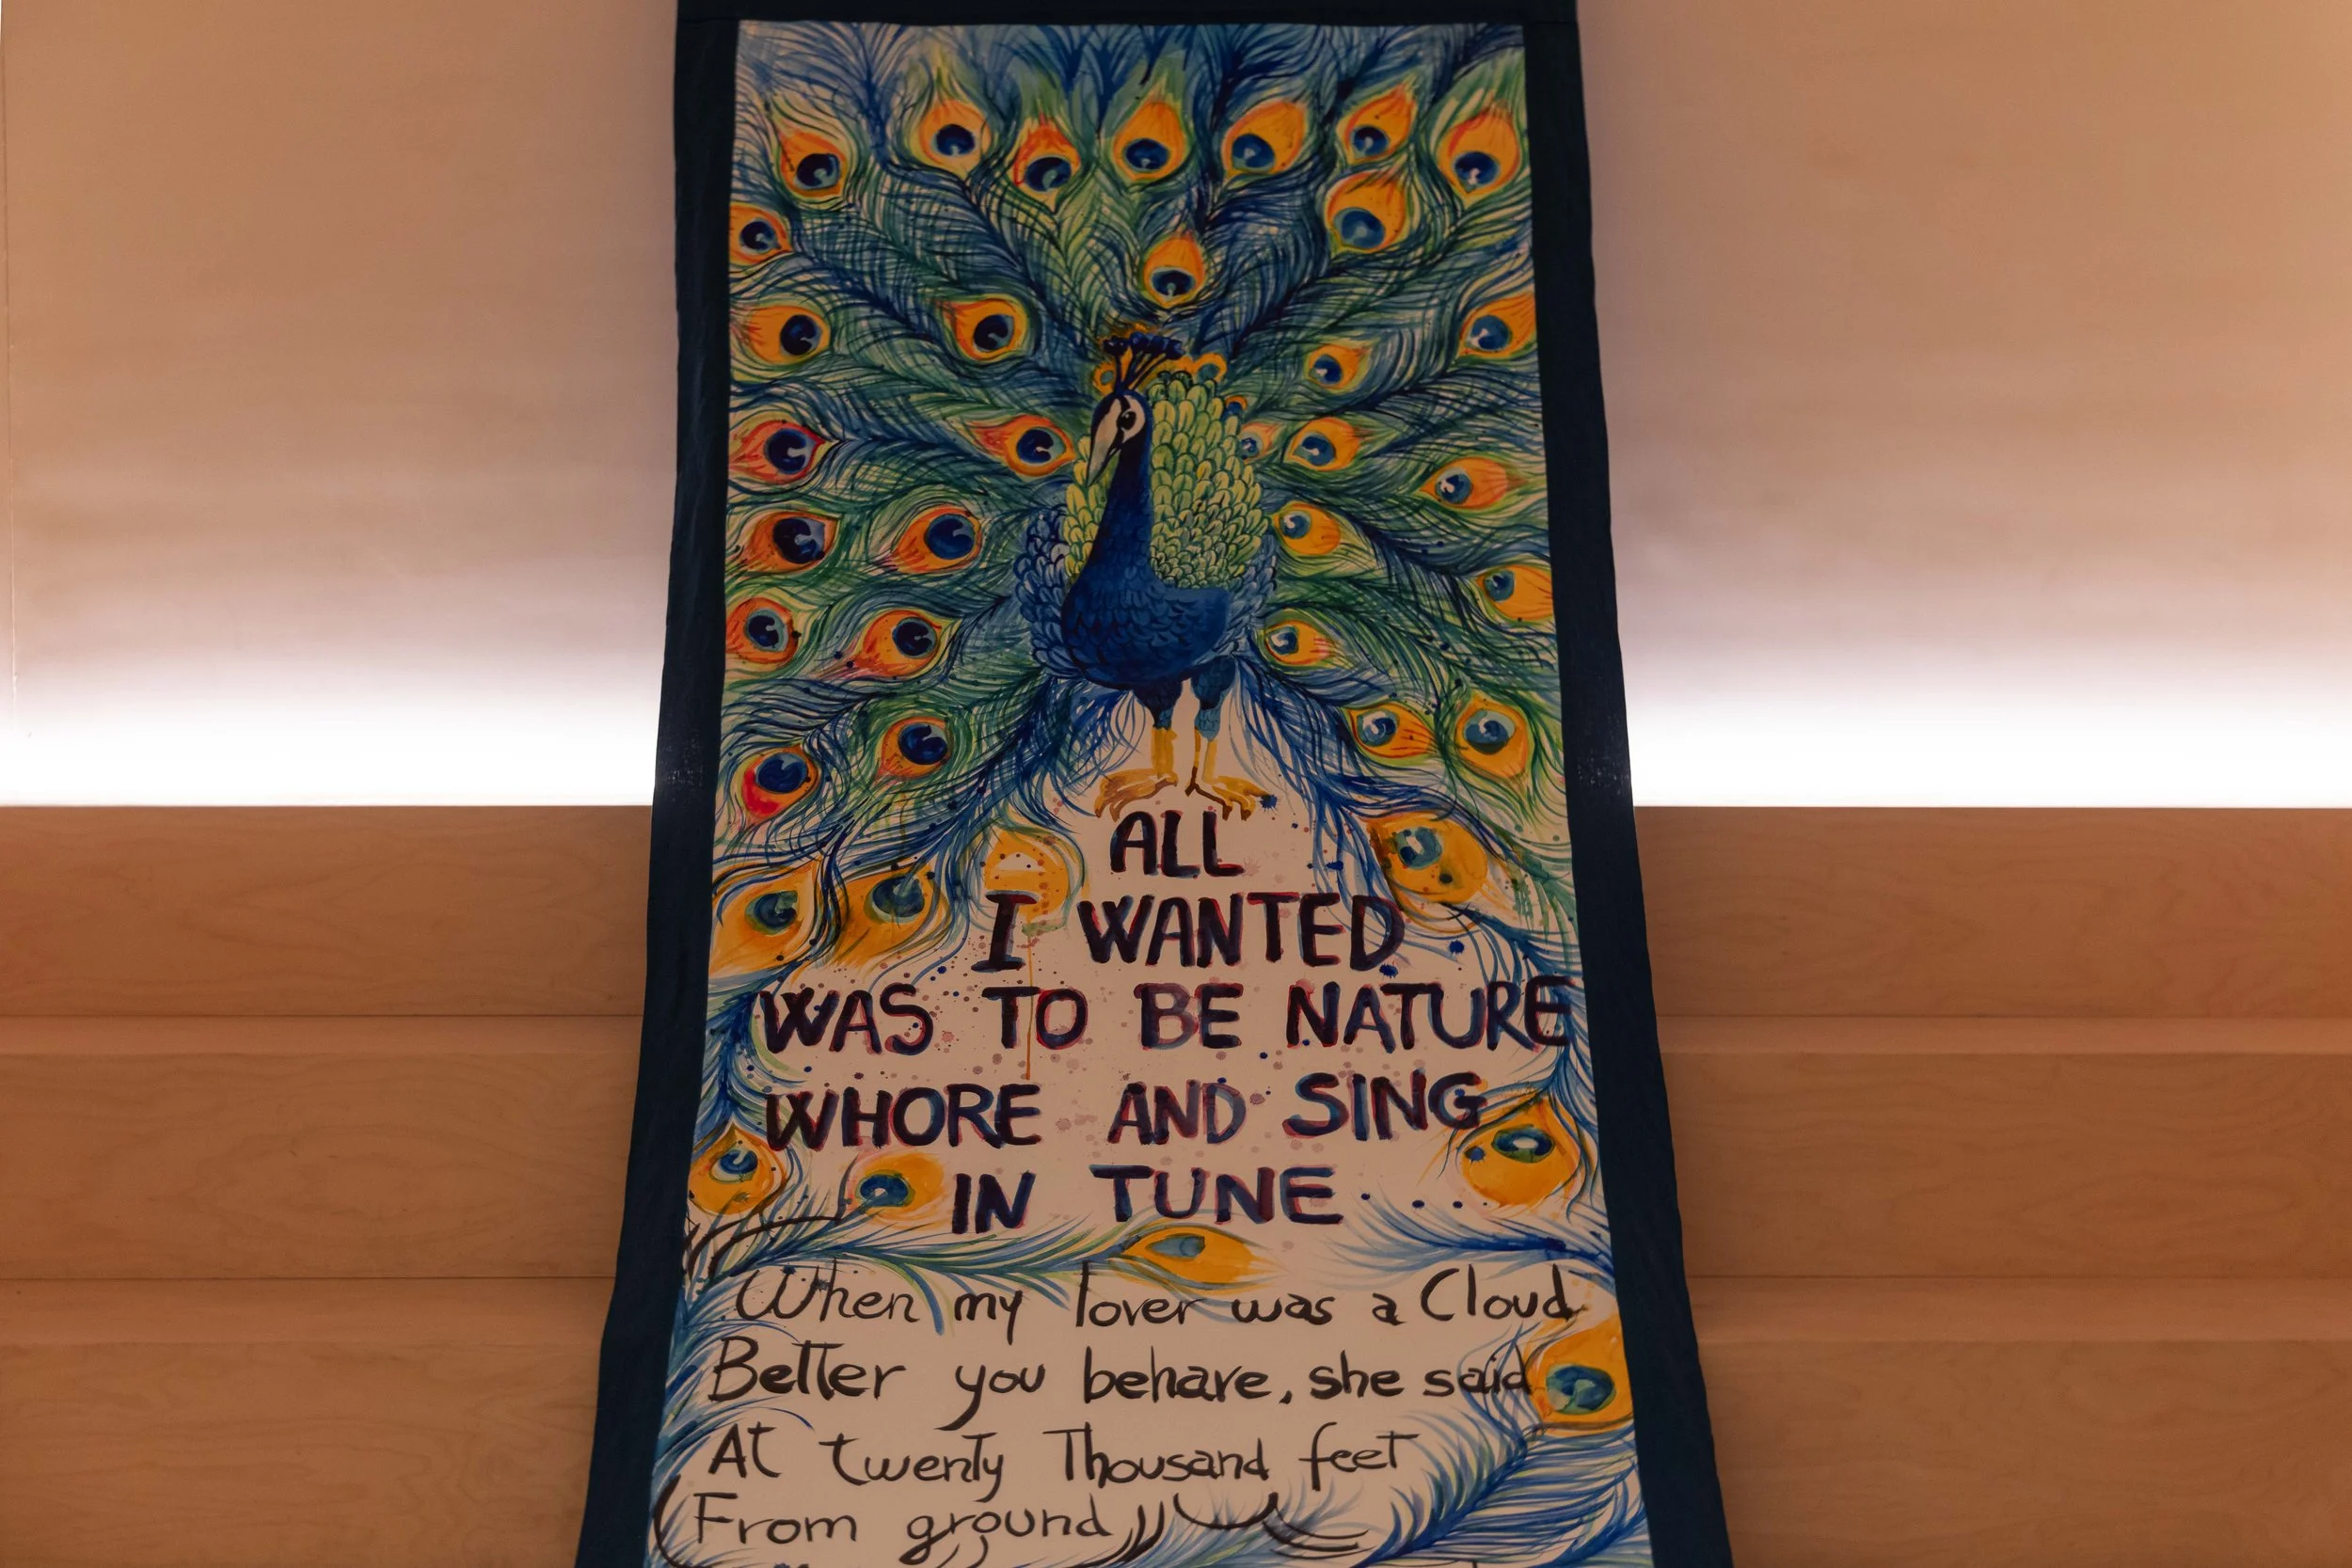 ALL
I WANTED
WAS TO BE NATURE
WHORE AND SING
IN TUNE...
When my lover was a Cloud
Better you behave, she said
At twenty Thousand feet
From ground